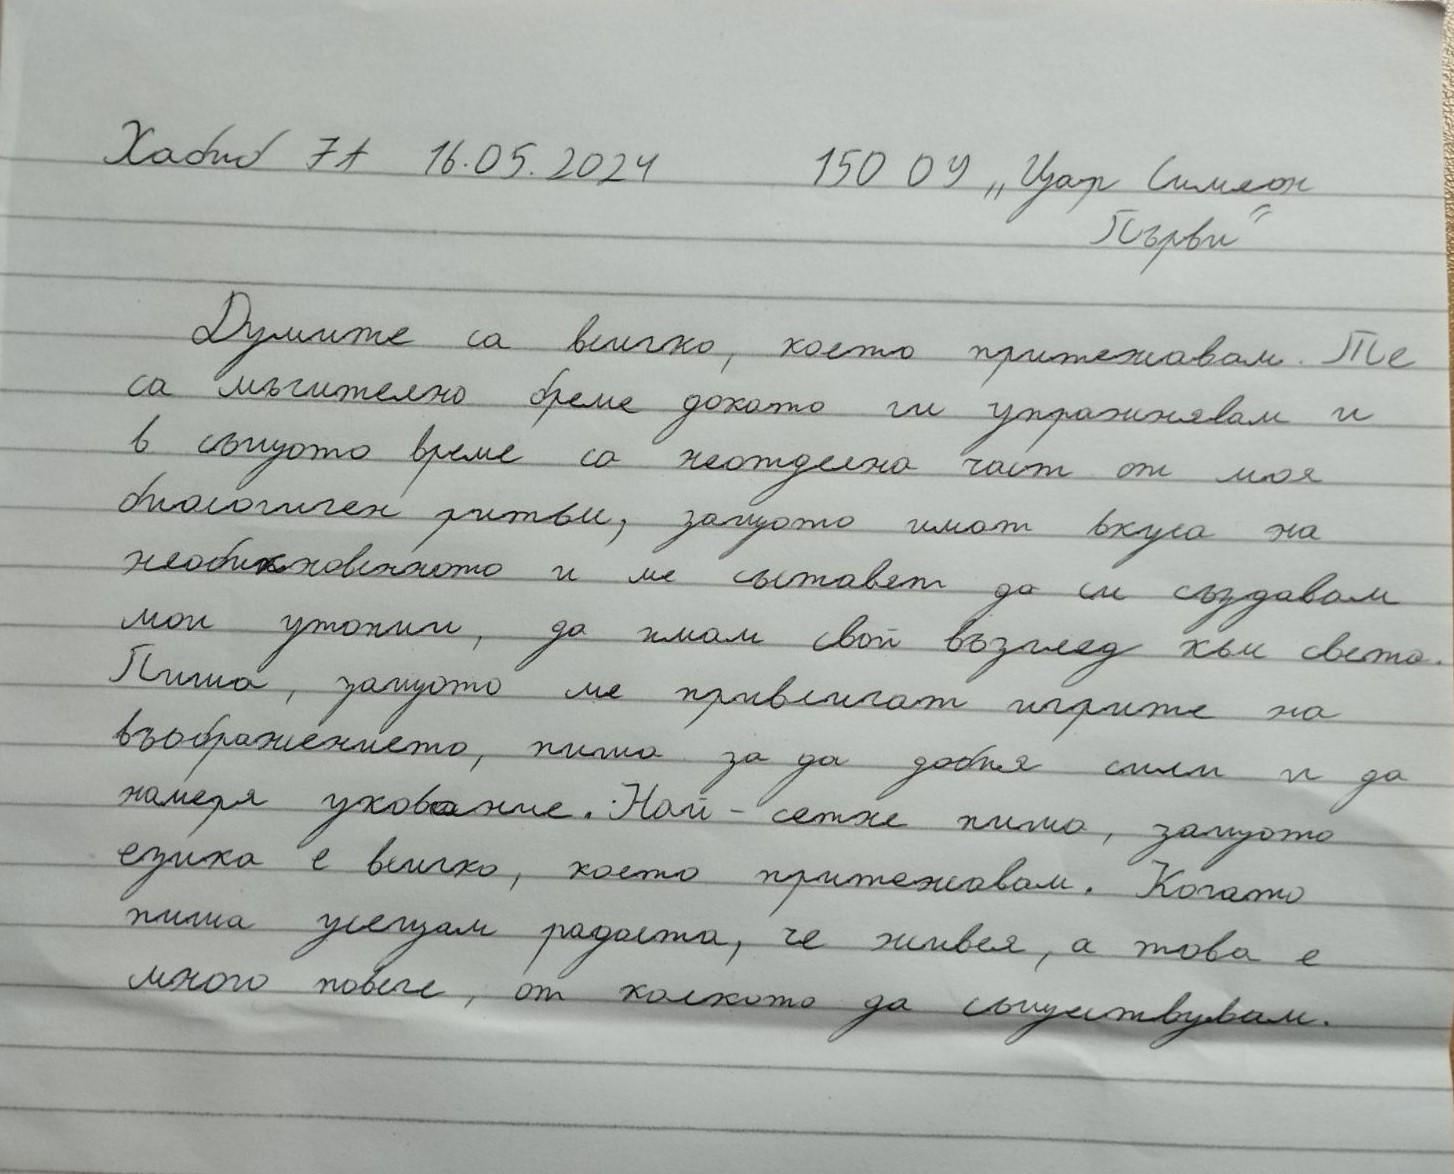 Хабиб 7А 16.05.2024 150 ОУ „Цар Симеон
Първи“
Думите са всичко, което притежавам. Те
са мъчително бреме докато ги упражнявам и
в същото време са неотделна част от моя
биологичен ритъм, защото имат вкуса на
необикновенното и ме съставят да си създавам
мои утопии, да имам свой възглед към света.
Пиша, защото ме привличат игрите на
въображението, пиша за да добия сили и да
намеря упование. Най-сетне пиша, защото
езика е всичко, което притежавам. Когато
пиша усещам радоста, че живея, а това е
много повече, от колкото да съществувам.